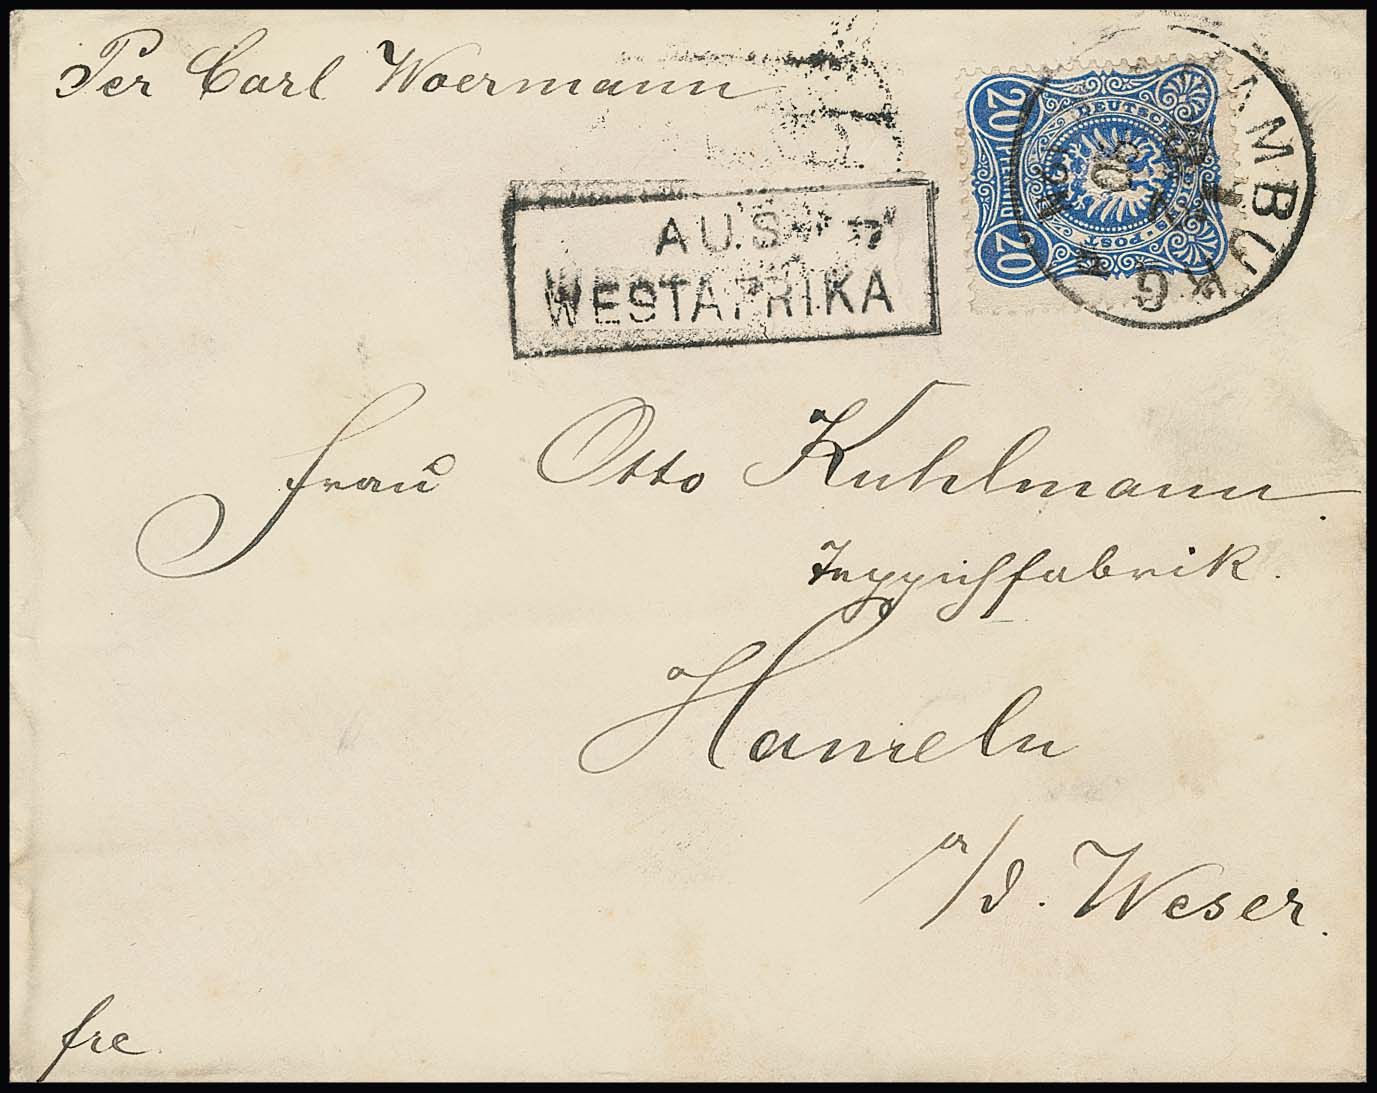 Per Carl Woermann
AUS
WESTAFRIKA
20 PFENNIG 20
DEUTSCHE REICHS-POST
HAMBURG
Frau Otto Kuhlmann
Teppichfabrik.
Hameln
a/d. Weser.
fre